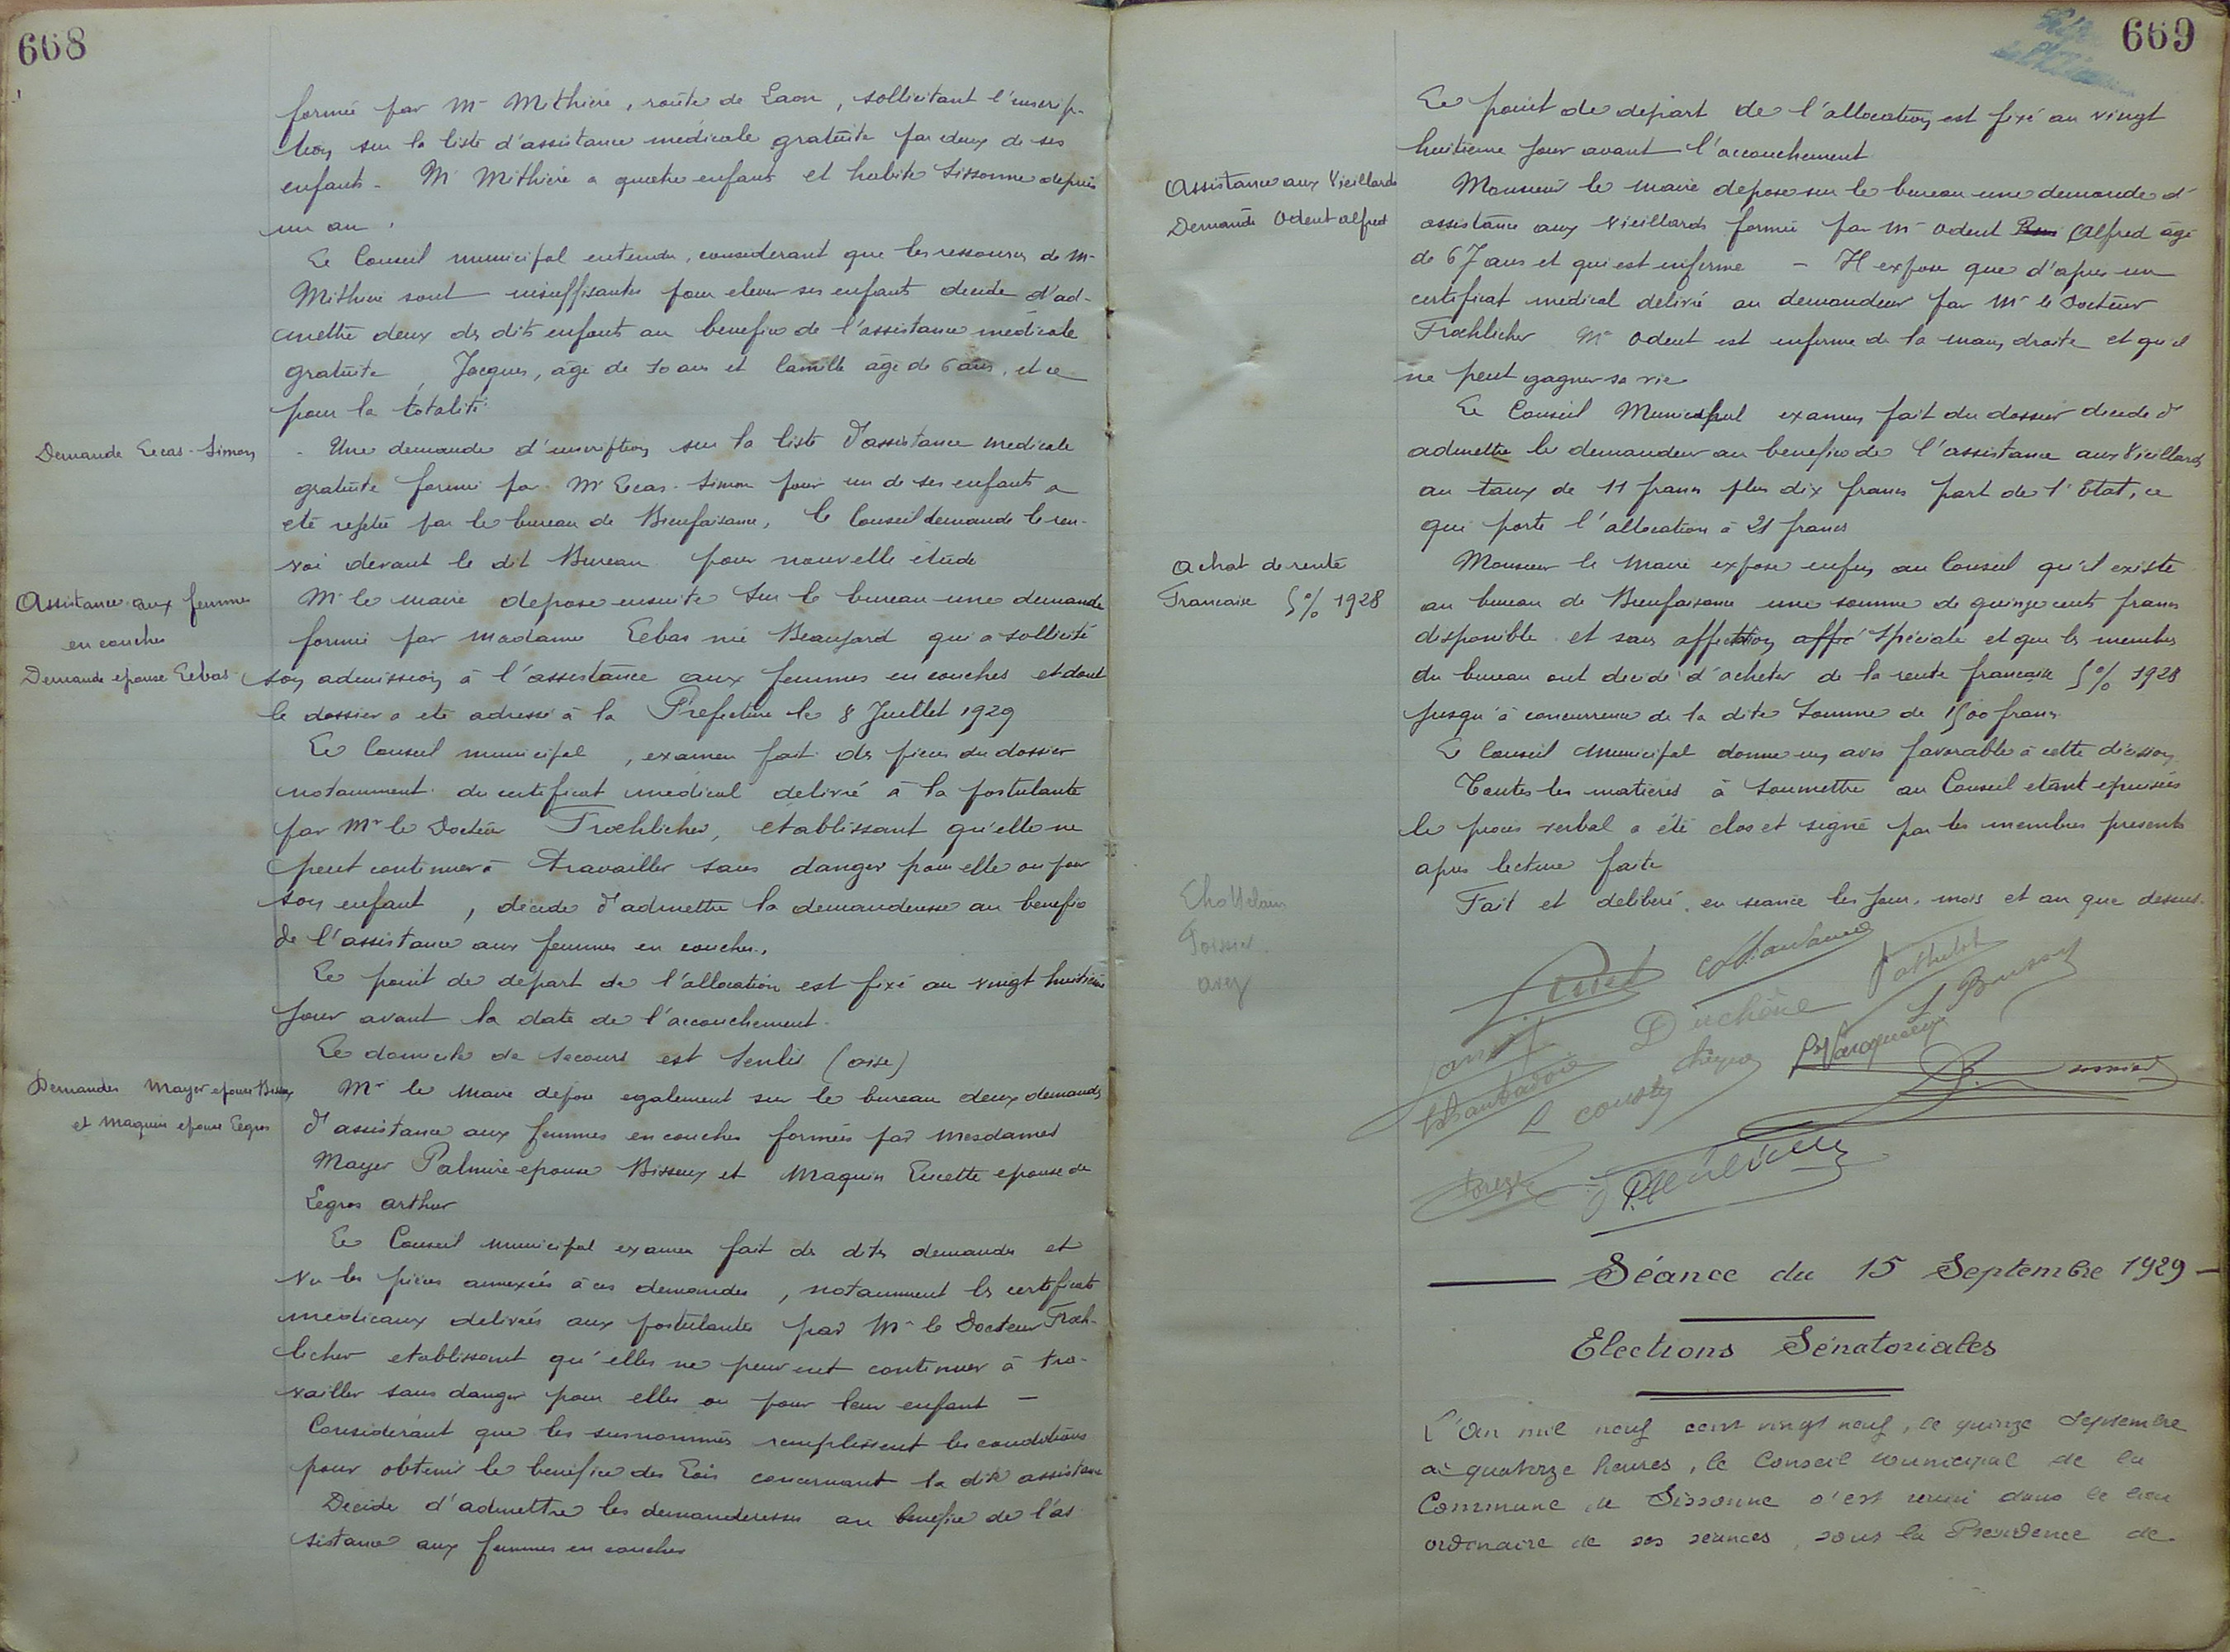 668
formée par Mr Mithiere, route de Laon, sollicitant l'inscrip-
tion sur la liste d'assistance medicale gratuite par deux de ses
enfants - Mr Mithiere a quatre enfants et habite Sissonne depuis
un an.
Le Conseil municipal entendu, considerant que les ressources de Mr
Mithiere sont insuffisantes pour elever ses enfants decide d'ad-
mettre deux des dits enfants au benefice de l'assistance medicale
gratuite, Jacques, agé de 10 ans et Camille agé de 6 ans, et ce
pour la totalité.
Demande Lecas-Simon
- Une demande d'inscription sur la liste d'assistance medicale
gratuite formée par Mr Lecas-Simon pour un de ses enfants a
eté rejetée par le bureau de Bienfaisance, le Conseil demande le ren-
voi devant le dit Bureau pour nouvelle étude
Assistance aux femmes
en couches
Demande epouse Lebas
Mr le maire depose ensuite sur le bureau une demande
formée par madame Lebas née Beaujard qui a sollicité
son admission à l'assistance aux femmes en couches et dont
le dossier a eté adressé à la Prefecture le 8 Juillet 1929
Le Conseil municipal, examen fait des pieces du dossier
notamment du certificat medical delivré à la postulante
par Mr le Docteur Froehlicher, etablissant qu'elle ne
peut continuer à travailler sans danger pour elle ou pour
son enfant, decide d'admettre la demanderesse au benefice
de l'assistance aux femmes en couches.
Le point de depart de l'allocation est fixé au vingt huitieme
jour avant la date de l'accouchement.
Le domicile de secours est Senlis (oise)
Demandes Mayer epouse Bisseux
et Maquin epouse Legros
Mr le Maire depose egalement sur le bureau deux demandes
d'assistance aux femmes en couches formées par mesdames
Mayer Palmire epouse Bisseux et Maquin Lucette epouse de
Legros arthur
Le Conseil municipal examen fait des dites demandes et
Vu les pieces annexées à ces demandes, notamment les certificats
medicaux delivrés aux postulantes par Mr le Docteur Froeh-
licher etablissant qu'elles ne peuvent continuer à tra-
vailler sans danger pour elles ou pour leur enfant -
Considérant que les susnommées remplissent les conditions
pour obtenir le benefice des Lois concernant la dite assistance
Decide d'admettre les demanderesses au benefice de l'as
sistance aux femmes en couches
669
Le point de depart de l'allocation est fixé au vingt
huitieme jour avant l'accouchement
Assistance aux Vieillards
Demande Odent alfred
Monsieur le maire depose sur le bureau une demande d'
assistance aux Vieillards formée par Mr odent Alfred agé
de 67 ans et qui est infirme - Il expose que d'apres un
certificat medical delivré au demandeur par Mr le Docteur
Froehlicher Mr Odent est infirme de la main droite et qu'il
ne peut gagner sa vie
Le Conseil Municipal examen fait du dossier decide d'
admettre le demandeur au benefice de l'assistance aux Vieillards
au taux de 11 francs plus dix francs part de l'Etat, ce
qui porte l'allocation à 21 francs
Achat de rente
Francaise 5% 1928
Monsieur le Maire expose enfin au Conseil qu'il existe
au bureau de Bienfaisance une somme de quinze cents francs
disponible et sans affectation affec speciale et que les membres
du bureau ont decidé d'acheter de la rente francaise 5% 1928
jusqu'à concurrence de la dite somme de 1500 francs
Le Conseil Municipal donne un avis favorable à cette decision
Toutes les matieres à soumettre au Conseil etant epuisées
le proces verbal a été clos et signé par les membres presents
apres lecture faite
Fait et deliberé en seance les jour, mois et an que dessus.
Chatelain
Duchêne
L Couste
Séance du 15 Septembre 1929
Elections Sénatoriales
L'an mil neuf cent vingt neuf, le quinze Septembre
à quatorze heures, le Conseil municipal de la
Commune de Sissonne s'est reuni dans le lieu
ordinaire de ses séances, sous la Présidence de